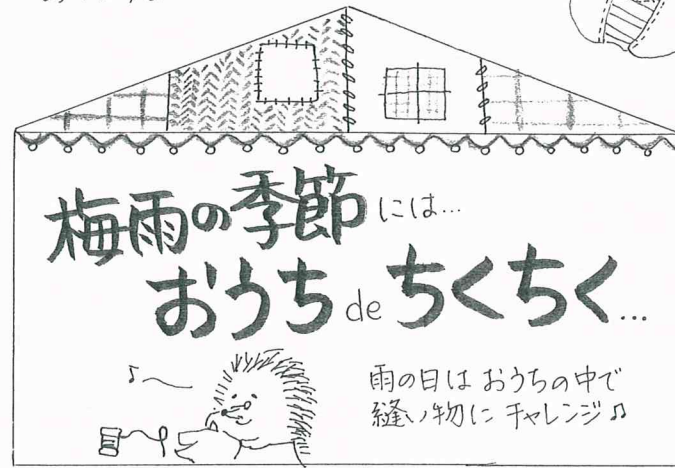 梅雨の季節には…
おうち de ちくちく…
雨の日は おうちの中で
縫い物に チャレンジ♫